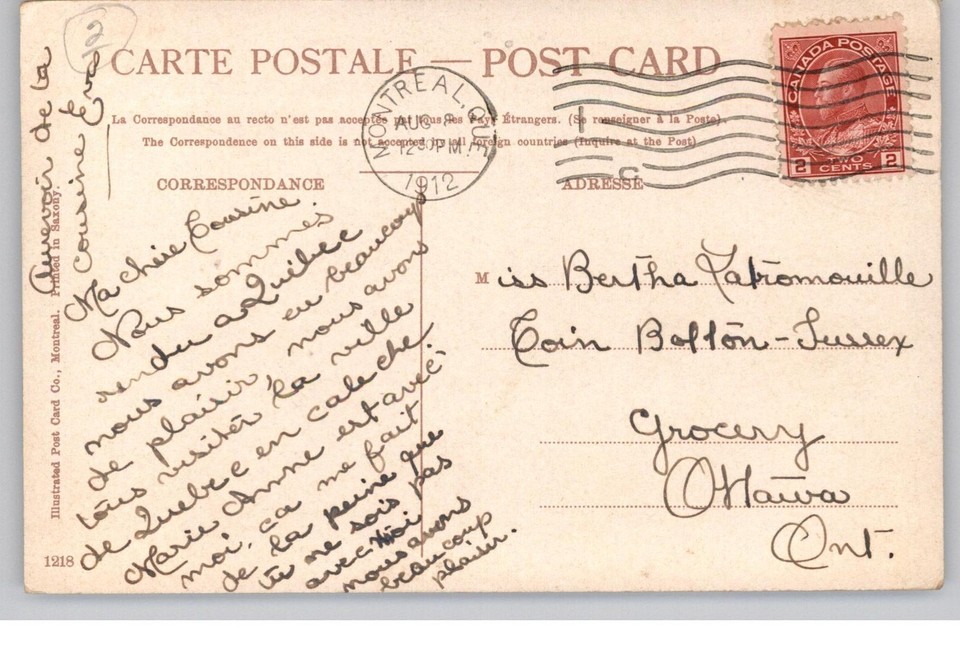 2
CARTE POSTALE — POST CARD
La Correspondance au recto n'est pas acceptée par tous les Pays Étrangers. (Se renseigner à la Poste)
The Correspondence on this side is not accepted by all foreign countries (Inquire at the Post)
CORRESPONDANCE
ADRESSE
MONTREAL, QUE.
AUG 8
12 30 PM
1912
CANADA POSTAGE
2 TWO CENTS 2
Ma chère Cousine.
Nous sommes
rendu a Québec
nous avons eu beaucoup
de plaisir, nous avons
tous visiter la ville
de Quebec en caleche
Marie Anne est avec
moi, ça me fait
de la peine que
tu ne sois pas
avec moi
nous avons
beaucoup
plaisir.
Aurevoir de ta
cousine Eva
Miss Bertha Latromouille
Coin Bolton - Sussex
Grocery
Ottawa
Ont.
Illustrated Post Card Co., Montreal. Printed in Saxony.
1218